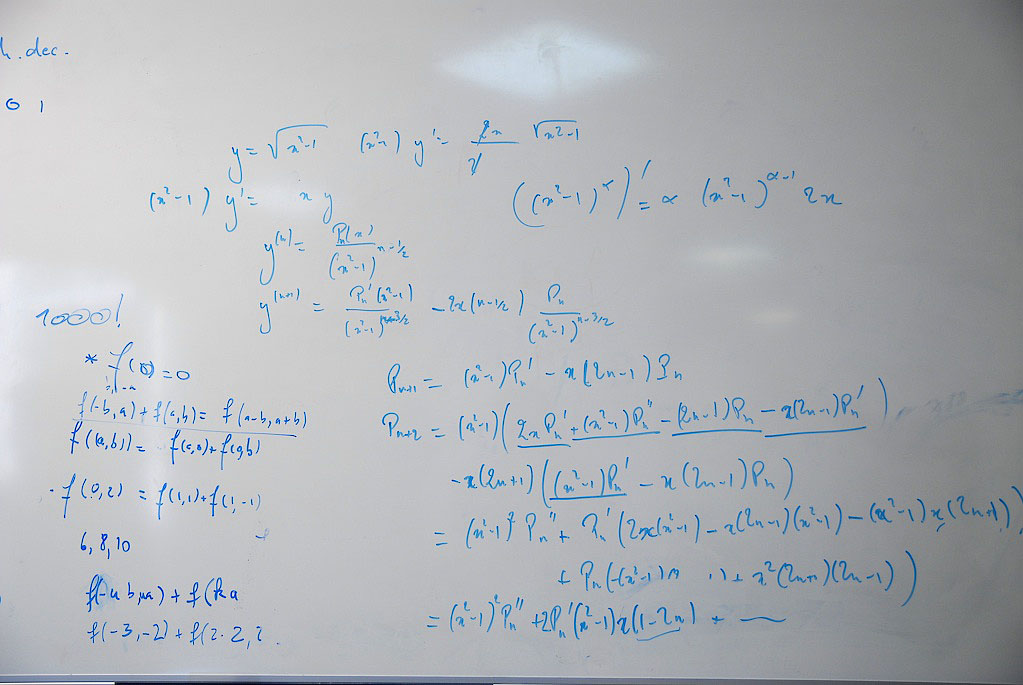 h. dec.
0 1
y = √(x²-1) (x²-1) y' = 2x/2 √(x²-1)
(x²-1) y' = x y
((x²-1)^α)' = α (x²-1)^(α-1) 2x
y^(n) = P_n(x)/(x²-1)^(n-1/2)
y^(n+1) = P_n'(x²-1)/(x²-1)^(n+3/2) - 2x(n-1/2) P_n/(x²-1)^(n-3/2)
1000!
* f(0) = 0
f(-b,a) + f(a,b) = f(a-b,a+b)
f((a,b)) = f(a,0) + f(0,b)
- f(0,2) = f(1,1) + f(1,-1)
6, 8, 10
f(-3,-2) + f(2·2,2
P_n+1 = (x²-1)P_n' - x(2n-1)P_n
P_n+2 = (x²-1)(2xP_n' + (x²-1)P_n'' - (2n-1)P_n - x(2n-1)P_n')
-x(2n+1)((x²-1)P_n' - x(2n-1)P_n)
= (x²-1)² P_n'' + P_n'(2x(x²-1) - x(2n-1)(x²-1) - (x²-1)x(2n+1))
+ P_n(-(x²-1) + x²(2n+1)(2n-1))
= (x²-1)² P_n'' + 2P_n'(x²-1)x(1-2n) +